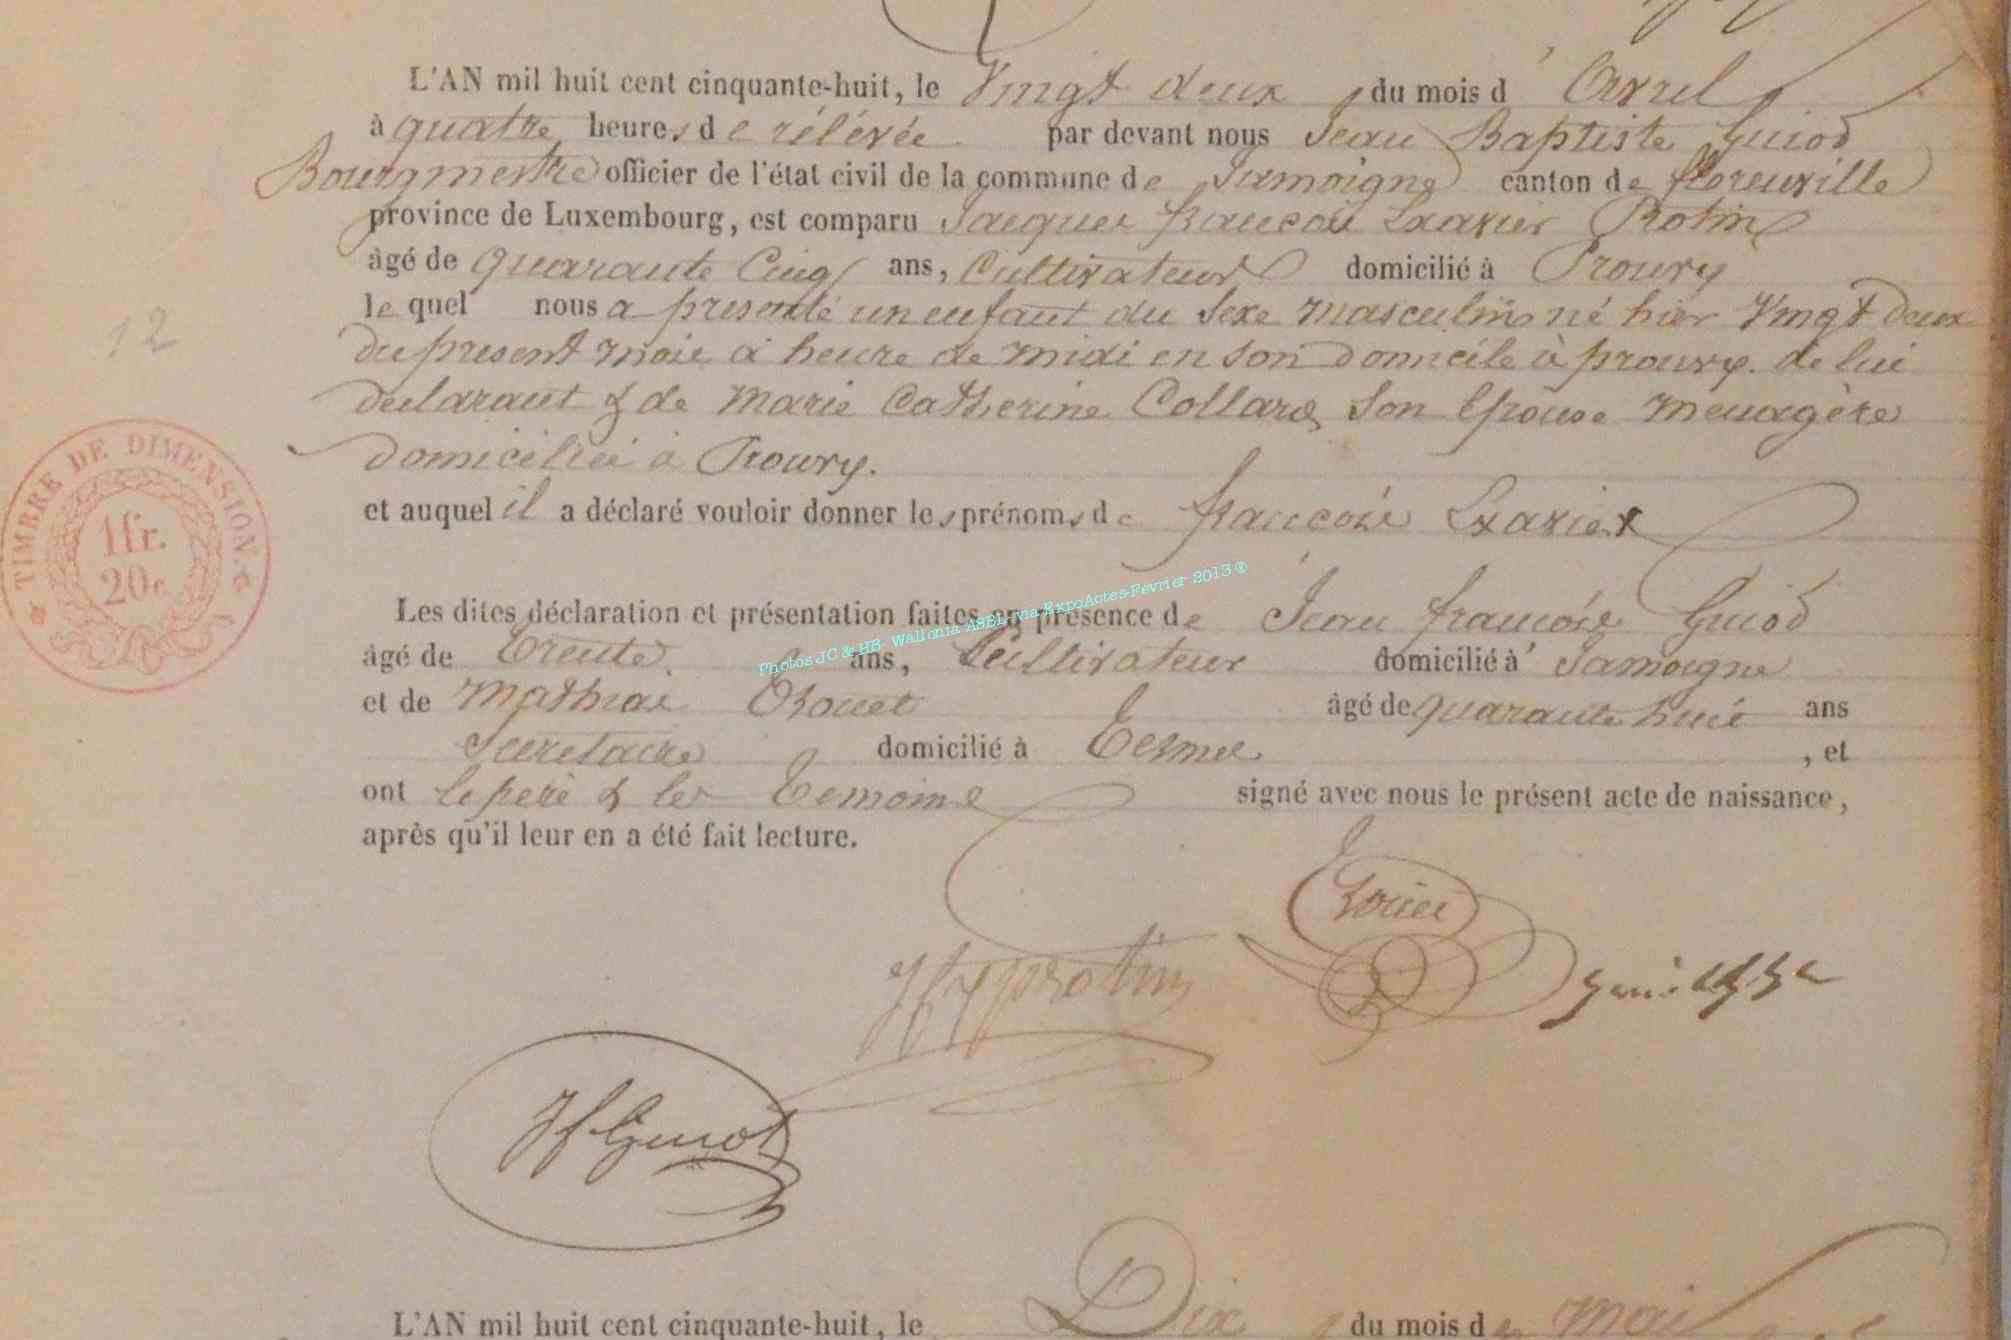 L'AN mil huit cent cinquante-huit, le Vingt deux du mois d'Avril
à quatre heures de rélévée par devant nous Jean Baptiste Guiod
Bourgmestre officier de l'état civil de la commune de Jamoigne canton de florenville
province de Luxembourg, est comparu Jacques francois Xavier Rotin
âgé de quarante Cinq ans, Cultivateur domicilié à Prouvy
le quel nous a presenté un enfant du sexe masculin né hier Vingt deux
12
du present mois à heure de midi en son Domicile à prouvy. de lui
declarant & de Marie Catherine Collard son Epouse menagère
Domiciliée à Prouvy.
et auquel il a déclaré vouloir donner les prénoms de francois Xavier
TIMBRE DE DIMENSION.
1fr.
20c
Les dites déclaration et présentation faites en présence de Jean francois Guiod
Photos JC & HB Wallonia ASBL via ExpoActes-Fevrier 2013 ®
âgé de trente ans, Cultivateur domicilié à Jamoigne
et de Mathias âgé de quarante huit ans
Secretaire domicilié à Termes, et
ont le pere & les Temoins signé avec nous le présent acte de naissance,
après qu'il leur en a été fait lecture.
L'AN mil huit cent cinquante-huit, le Dix du mois de Mai